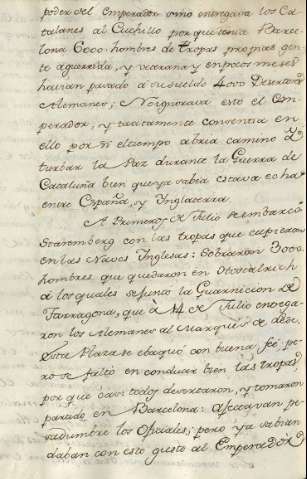 poder del Emperador como entregava los Ca
talanes al Cuchillo porque tenia Barce
lona 6000. hombres de tropas propias gen
te aguerrida, y veterana y en pocos meses
havian pasado a su sueldo 4000 Desertores
Alemanes; No ignorava esto el Em
perador, y tacitamente consentia en
ello por si el tiempo abria camino de
turbar la Paz durante la Guerra de
Cataluña bien que ya sabia estava echa
entre España, y Inglaterra.
A Primeros de Julio se embarcó
Staremberg con las tropas que cupieron
en las Naves Inglesas: Sobraron 3000
hombres que quedaron en
a los quales se junto la Guarnicion de
Tarragona, que à 14 de Julio entrega
ron los Alemanes al Marques de
Esta Plaza se evaquó con buena feé pe
ro se faltó en conducir bien las tropas,
por que casi todos desertaron, y tomaron
partido en Barcelona: Afectavan pe
sadumbre los Oficiales; pero ya sabian
davan con esto gusto al Emperador